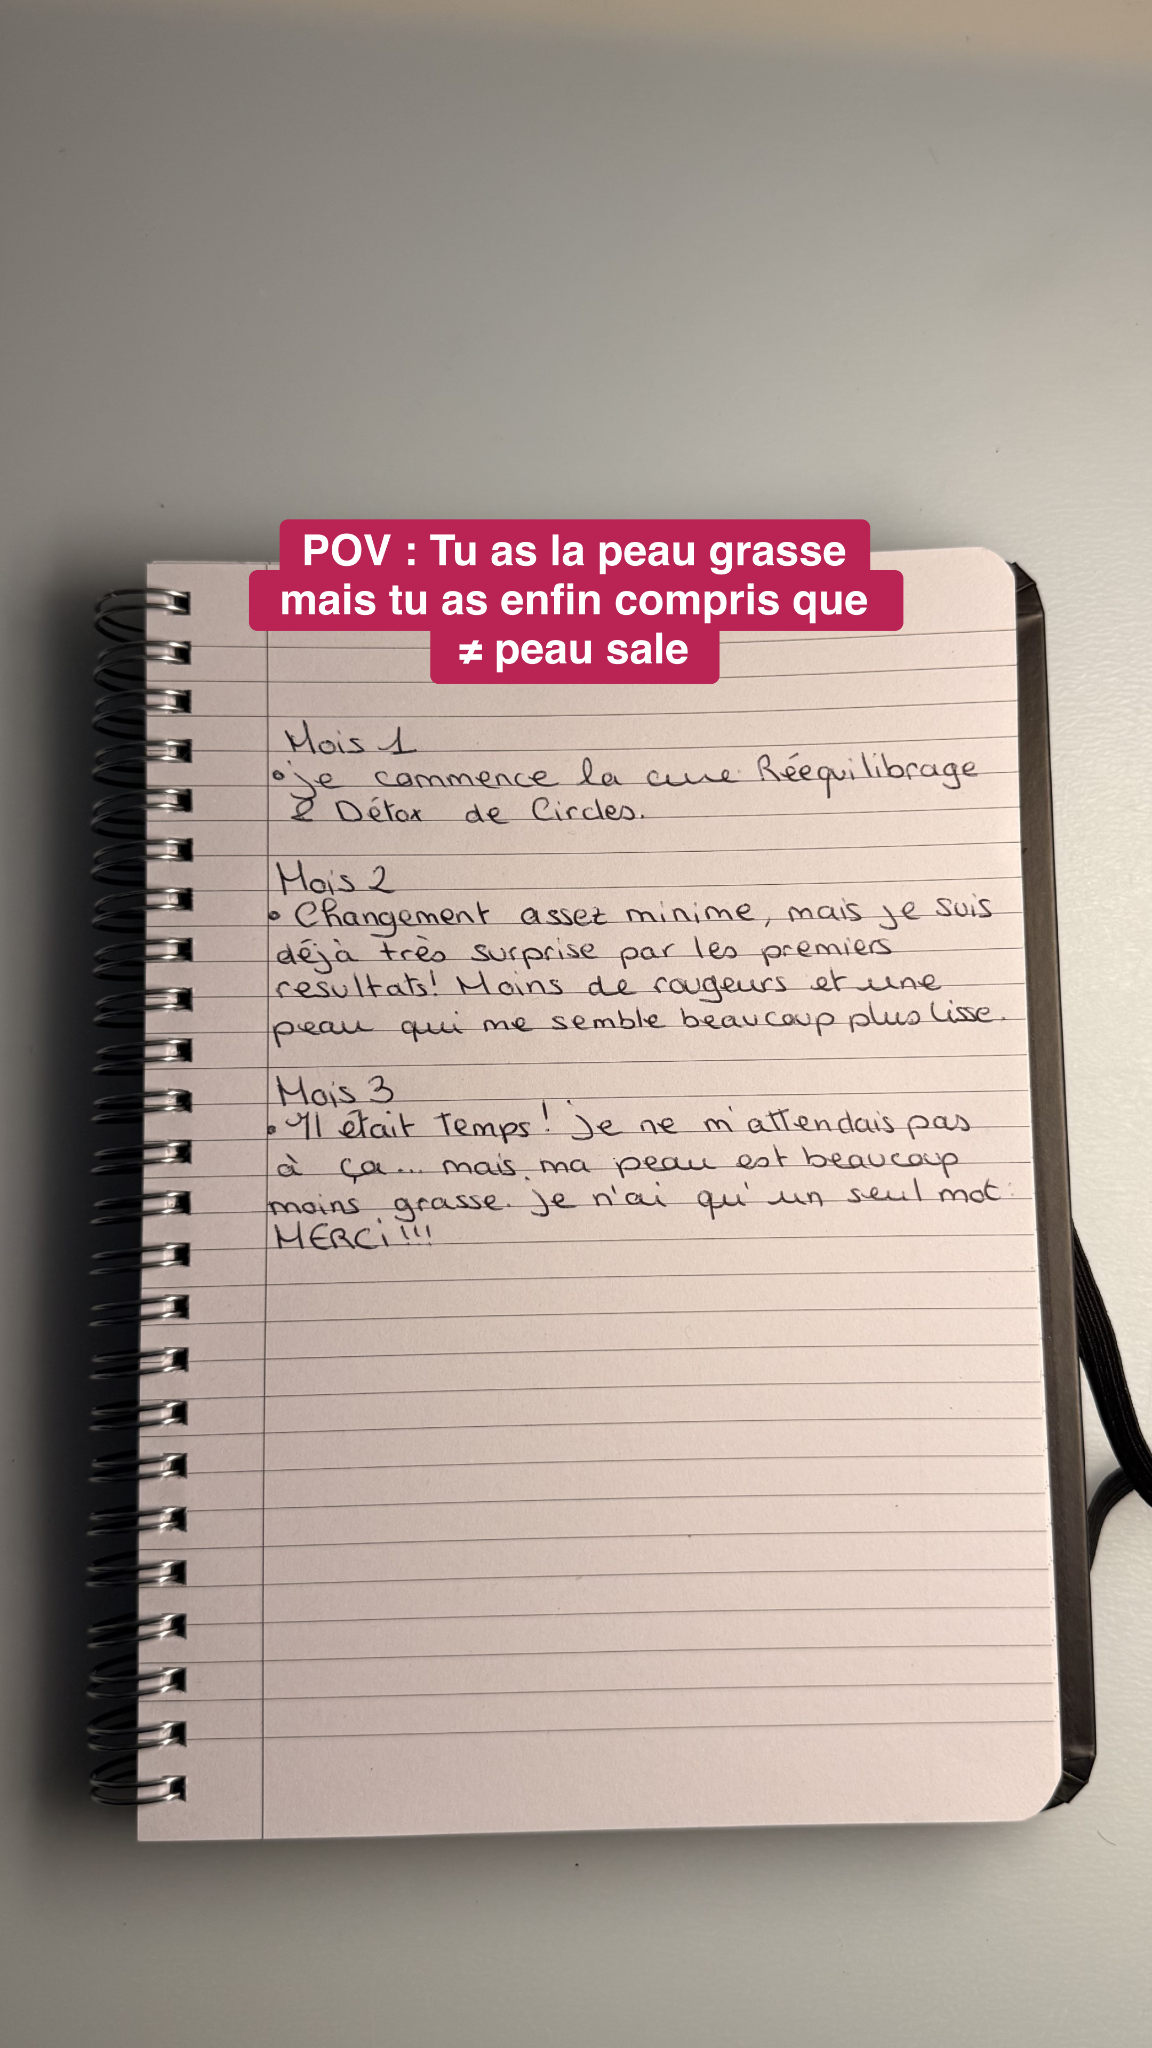 POV : Tu as la peau grasse
mais tu as enfin compris que
≠ peau sale
Mois 1
• je commence la cure Rééquilibrage
& Détox de Circles.
Mois 2
• Changement assez minime, mais je suis
déjà très surprise par les premiers
resultats! Moins de rougeurs et une
peau qui me semble beaucoup plus lisse.
Mois 3
• Il était Temps! je ne m'attendais pas
à ça... mais ma peau est beaucoup
moins grasse. je n'ai qu'un seul mot:
MERCi!!!